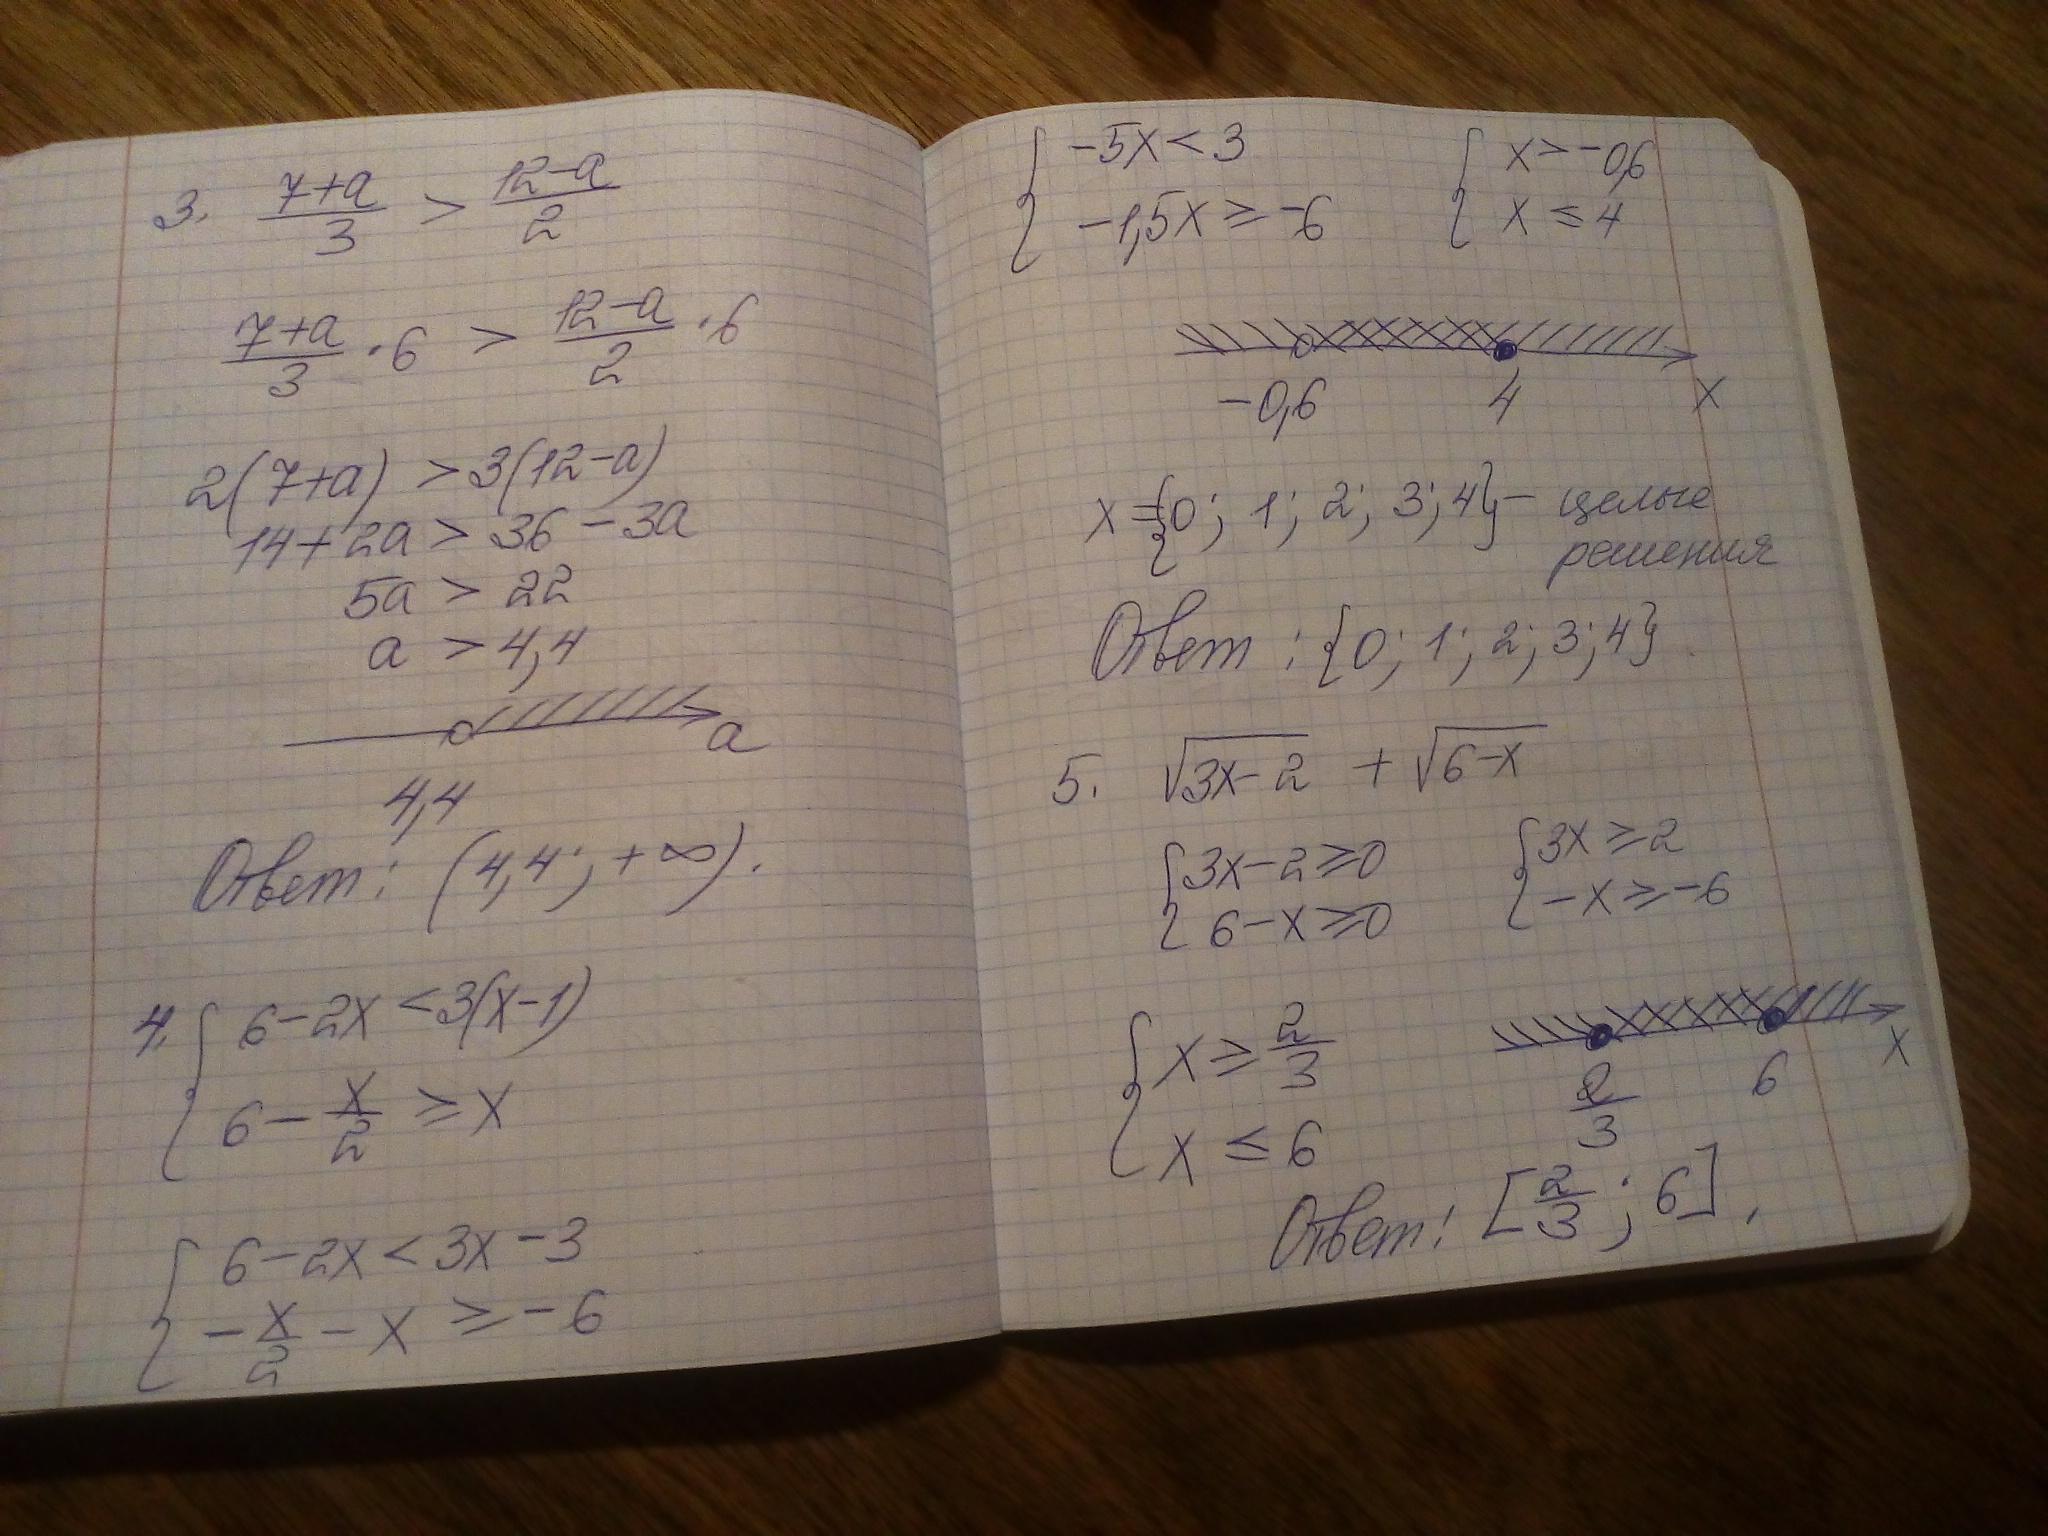 3. (7+a)/3 > (12-a)/2
(7+a)/3 · 6 > (12-a)/2 · 6
2(7+a) > 3(12-a)
14+2a > 36-3a
5a > 22
a > 4,4
a
4,4
Ответ: (4,4; +∞).
4. { 6-2x < 3(x-1)
6 - x/2 ≥ x
{ 6-2x < 3x-3
-x/2 - x ≥ -6
{ -5x < 3 { x > -0,6
-1,5x ≥ -6 x ≤ 4
-0,6 4 x
x = {0; 1; 2; 3; 4} – целые
решения
Ответ: {0; 1; 2; 3; 4}.
5. √(3x-2) + √(6-x)
{ 3x-2 ≥ 0 { 3x ≥ 2
6-x ≥ 0 -x ≥ -6
{ x ≥ 2/3
x ≤ 6
2/3 6 x
Ответ: [2/3; 6].